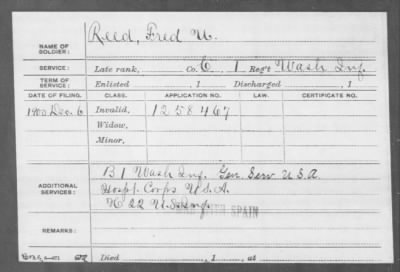 NAME OF SOLDIER: Reed, Fred M.
SERVICE: Late rank, Co. C, 1 Reg't Wash Inf.
TERM OF SERVICE: Enlisted , 1 Discharged , 1
DATE OF FILING. CLASS. APPLICATION NO. LAW. CERTIFICATE NO.
1900 Dec. 6 Invalid, 1258467
Widow,
Minor,
ADDITIONAL SERVICES:
B 1 Wash Inf. Gen Serv U.S.A
Hospl. Corps U.S.A.
22 U.S. Inf.
SPAIN
REMARKS:
Died , 1 , at